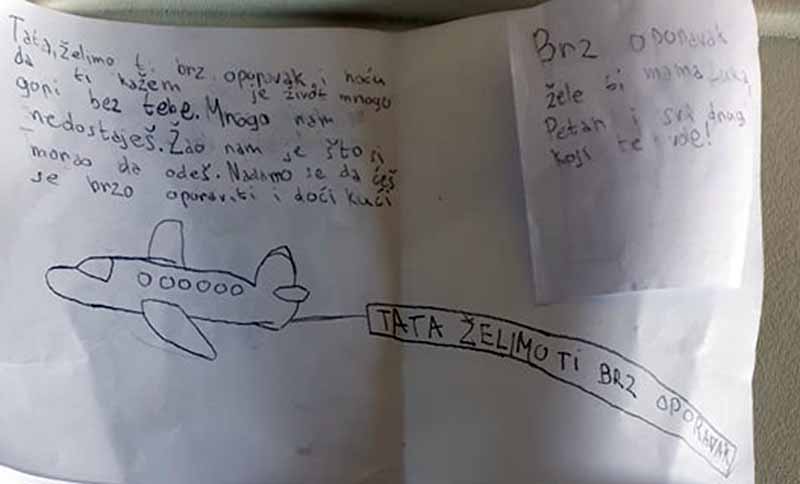 Tata, želimo ti brz oporavak i hoću
da ti kažem je život mnogo
gori bez tebe. Mnogo nam
nedostaješ. Žao nam je što si
morao da odeš. Nadamo se da ćeš
se brzo oporaviti i doći kući
Brz oporavak
žele ti mama Luka,
Petar i svi drugi
koji te vole!
TATA ŽELIMO TI BRZ OPORAVAK